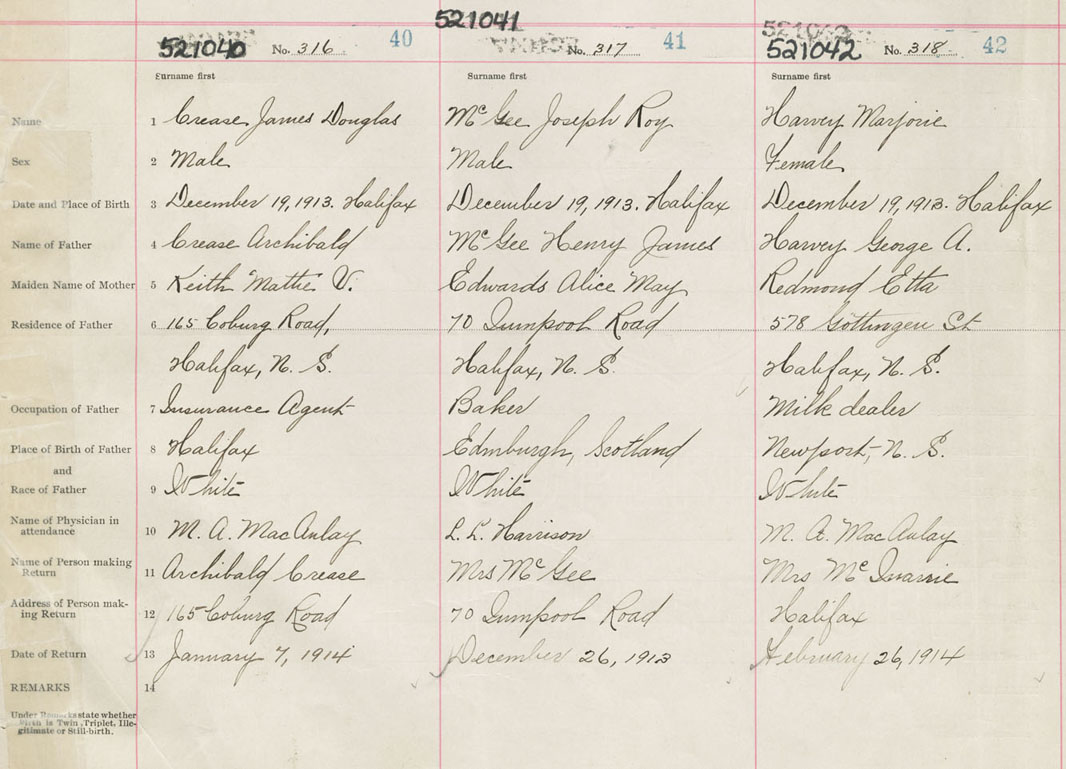 521040 No. 316 40
521041 No. 317 41
521042 No. 318 42
Surname first Surname first Surname first
Name 1 Crease James Douglas McGee Joseph Roy Harvey Marjorie
Sex 2 Male Male Female
Date and Place of Birth 3 December 19, 1913. Halifax December 19, 1913. Halifax December 19, 1913. Halifax
Name of Father 4 Crease Archibald McGee Henry James Harvey George A.
Maiden Name of Mother 5 Keith V. Edwards Alice May Redmond Etta
Residence of Father 6 165 Coburg Road, 70 Road 578 Gottingen St
Halifax, N. S. Halifax, N. S. Halifax, N. S.
Occupation of Father 7 Insurance Agent Baker Milk dealer
Place of Birth of Father 8 Halifax Edinburgh, Scotland Newport, N. S.
and
Race of Father 9 White White White
Name of Physician in
attendance 10 M. A. MacAulay L. L. Harrison M. A. MacAulay
Name of Person making
Return 11 Archibald Crease Mrs McGee Mrs
Address of Person mak-
ing Return 12 165 Coburg Road 70 Road Halifax
Date of Return 13 January 7, 1914 December 26, 1913 February 26, 1914
REMARKS 14
Under Remarks state whether
Birth is Twin, Triplet, Ille-
gitimate or Still-birth.